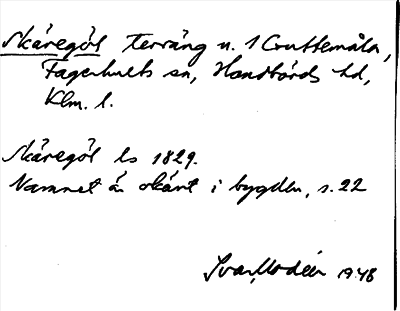 Skäregöl Terräng u. 1 Cruttemåla,
Fagerhults sn, Handbörds hd,
Klm. l.
Skäregöl ls 1829.
Namnet är okänt i bygden, s. 22
Ivar Modéer 1948